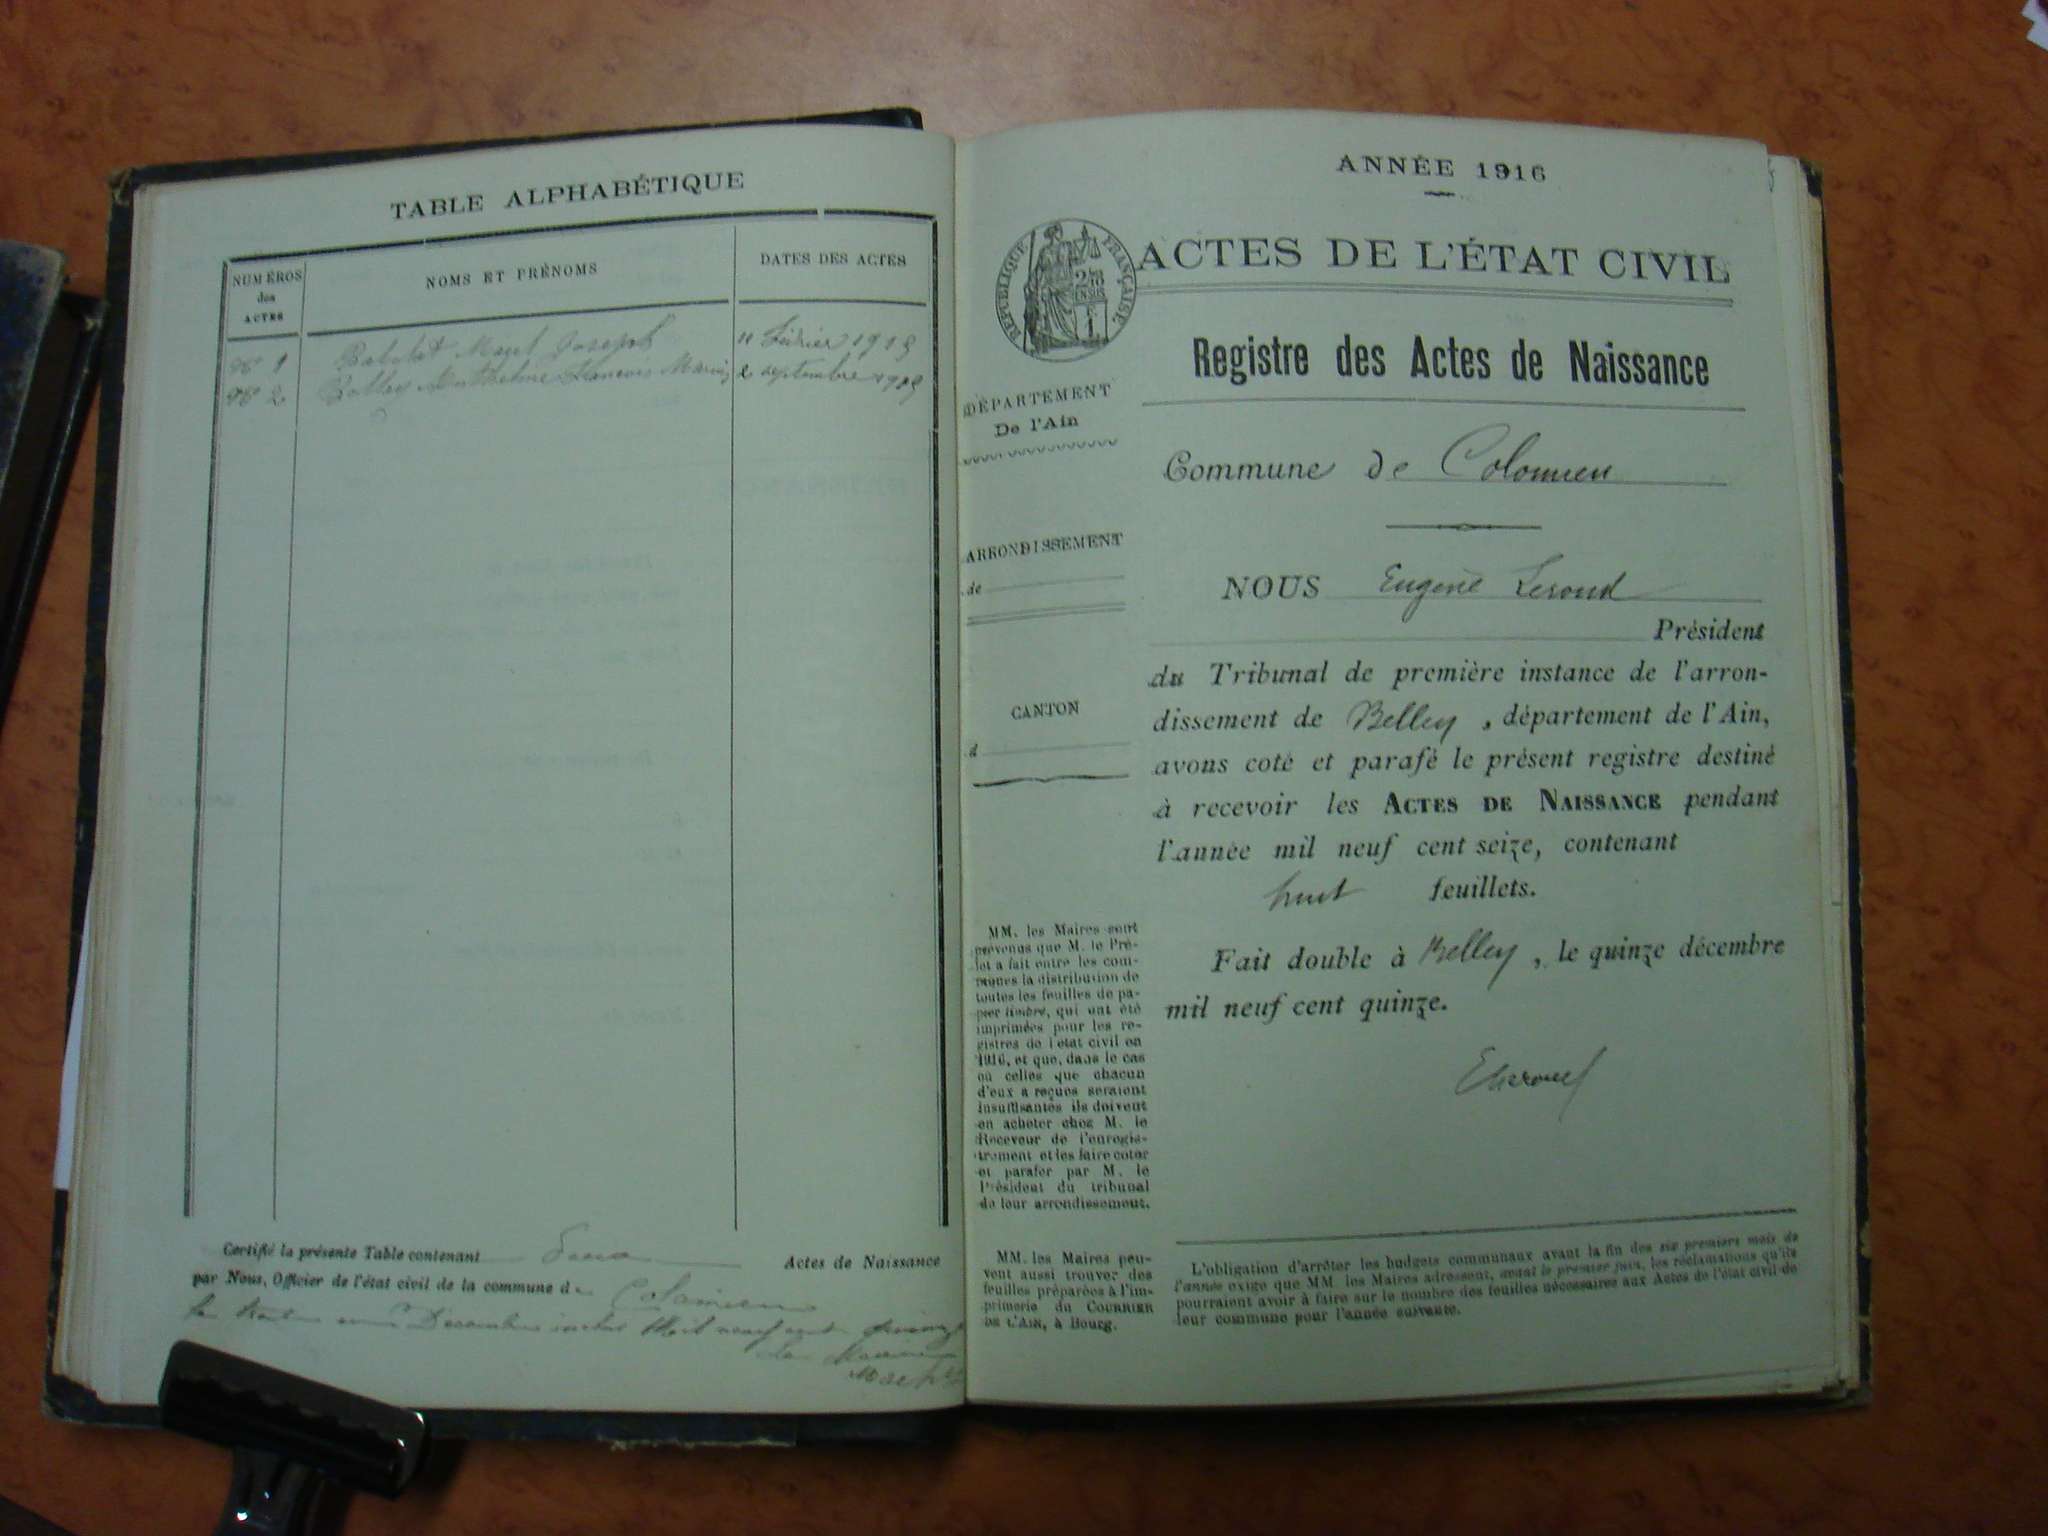 TABLE ALPHABÉTIQUE
NUMÉROS
des
ACTES
NOMS ET PRÉNOMS
DATES DES ACTES
Nº 1
Joseph
11 Février 1915
Nº 2
François
2 septembre
Certifié la présente Table contenant Deux Actes de Naissance
par Nous, Officier de l'état civil de la commune de Colomieu
le trente Décembre Mil neuf cent quinze
Le Maire
ANNÉE 1916
RÉPUBLIQUE FRANÇAISE
ACTES DE L'ÉTAT CIVIL
Registre des Actes de Naissance
DÉPARTEMENT
De l'Ain
ARRONDISSEMENT
de
CANTON
d
MM. les Maires sont
prévenus que M. le Pré-
fet a fait entre les com-
munes la distribution de
toutes les feuilles de pa-
pier timbré, qui ont été
imprimées pour les re-
gistres de l'état civil en
1916, et que, dans le cas
où celles que chacun
d'eux a reçues seraient
insuffisantes ils doivent
en acheter chez M. le
Receveur de l'enregis-
trement et les faire coter
et parafer par M. le
Président du tribunal
de leur arrondissement.
MM. les Maires peu-
vent aussi trouver des
feuilles préparées à l'im-
primerie du COURRIER
DE L'AIN, à Bourg.
Commune de Colomieu
NOUS Eugène Leroud
Président
du Tribunal de première instance de l'arron-
dissement de Belley, département de l'Ain,
avons coté et parafé le présent registre destiné
à recevoir les ACTES DE NAISSANCE pendant
l'année mil neuf cent seize, contenant
huit feuillets.
Fait double à Belley, le quinze décembre
mil neuf cent quinze.
L'obligation d'arrêter les budgets communaux avant la fin des six premiers mois de
l'année exige que MM. les Maires adressent, avant le premier juin, les réclamations qu'ils
pourraient avoir à faire sur le nombre des feuilles nécessaires aux Actes de l'état civil de
leur commune pour l'année suivante.